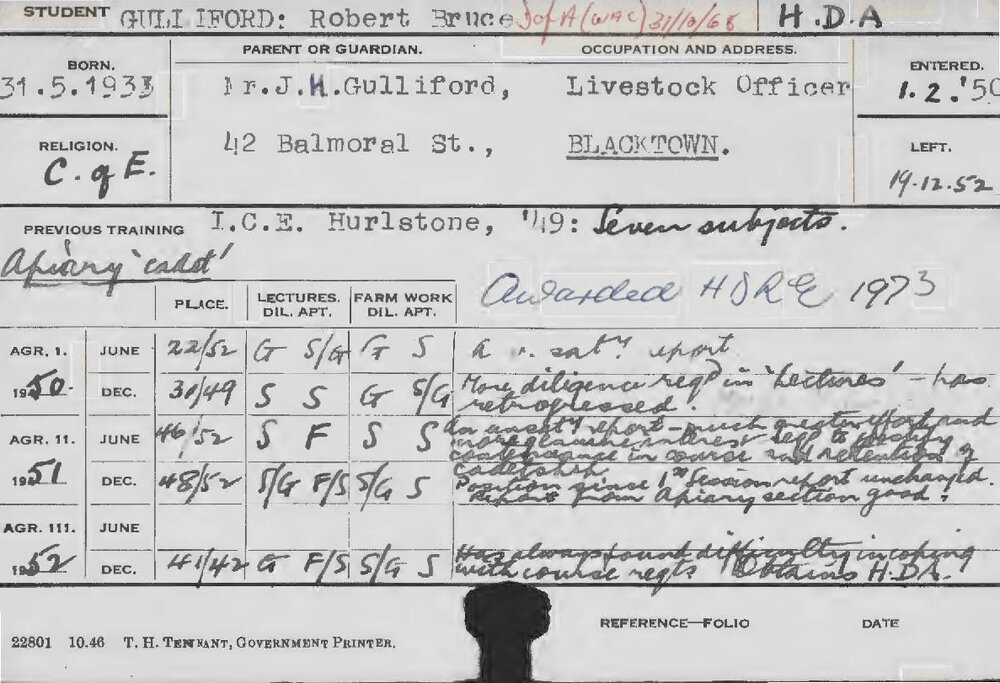 STUDENT GULLIFORD: Robert Bruce J of A (WAC) 31/10/68 H.D.A
PARENT OR GUARDIAN. OCCUPATION AND ADDRESS.
BORN. ENTERED.
31.5.1933 Mr.J.H.Gulliford, Livestock Officer 1.2.'50
RELIGION. 42 Balmoral St., BLACKTOWN. LEFT.
C. of E. 19.12.52
PREVIOUS TRAINING I.C.E. Hurlstone, '49: Seven subjects.
Apiary 'cadet'
PLACE. LECTURES. DIL. APT. FARM WORK DIL. APT. Awarded HDRE 1973
AGR. 1. JUNE 22/52 G S/G G S A v. sat.y report
1950. DEC. 31/49 S S G S/G More diligence reqd in 'Lectures' – has
retrogressed.
AGR. 11. JUNE 46/52 S F S S An unsat.y report – much greater effort and
more genuine interest reqd to justify
continuance in course and retention of
cadetship
1951 DEC. 48/52 S/G F/S S/G S Position since 1st Session report unchanged.
Report from Apiary section good.
AGR. 111. JUNE
1952 DEC. 41/42 G F/S S/G S Has always found difficulty in coping
with course reqts Obtains H.D.A.
REFERENCE—FOLIO DATE
22801 10.46 T. H. TENNANT, GOVERNMENT PRINTER.